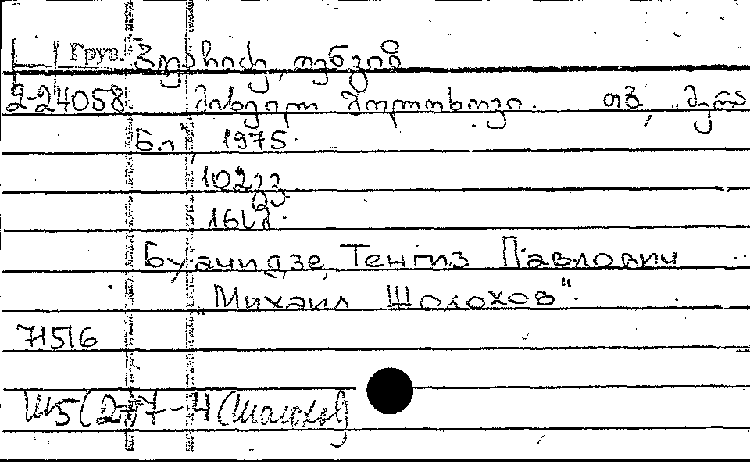 Груз. ბუაჩიძე, თენგიზ
2-24058 მიხეილ შოლოხოვი. თბ.,
1975.
102 გვ.
Буачидзе, Тенгиз Павлович
"Михаил Шолохов".
71516
Ш5(2=)7-4(Шолохов)